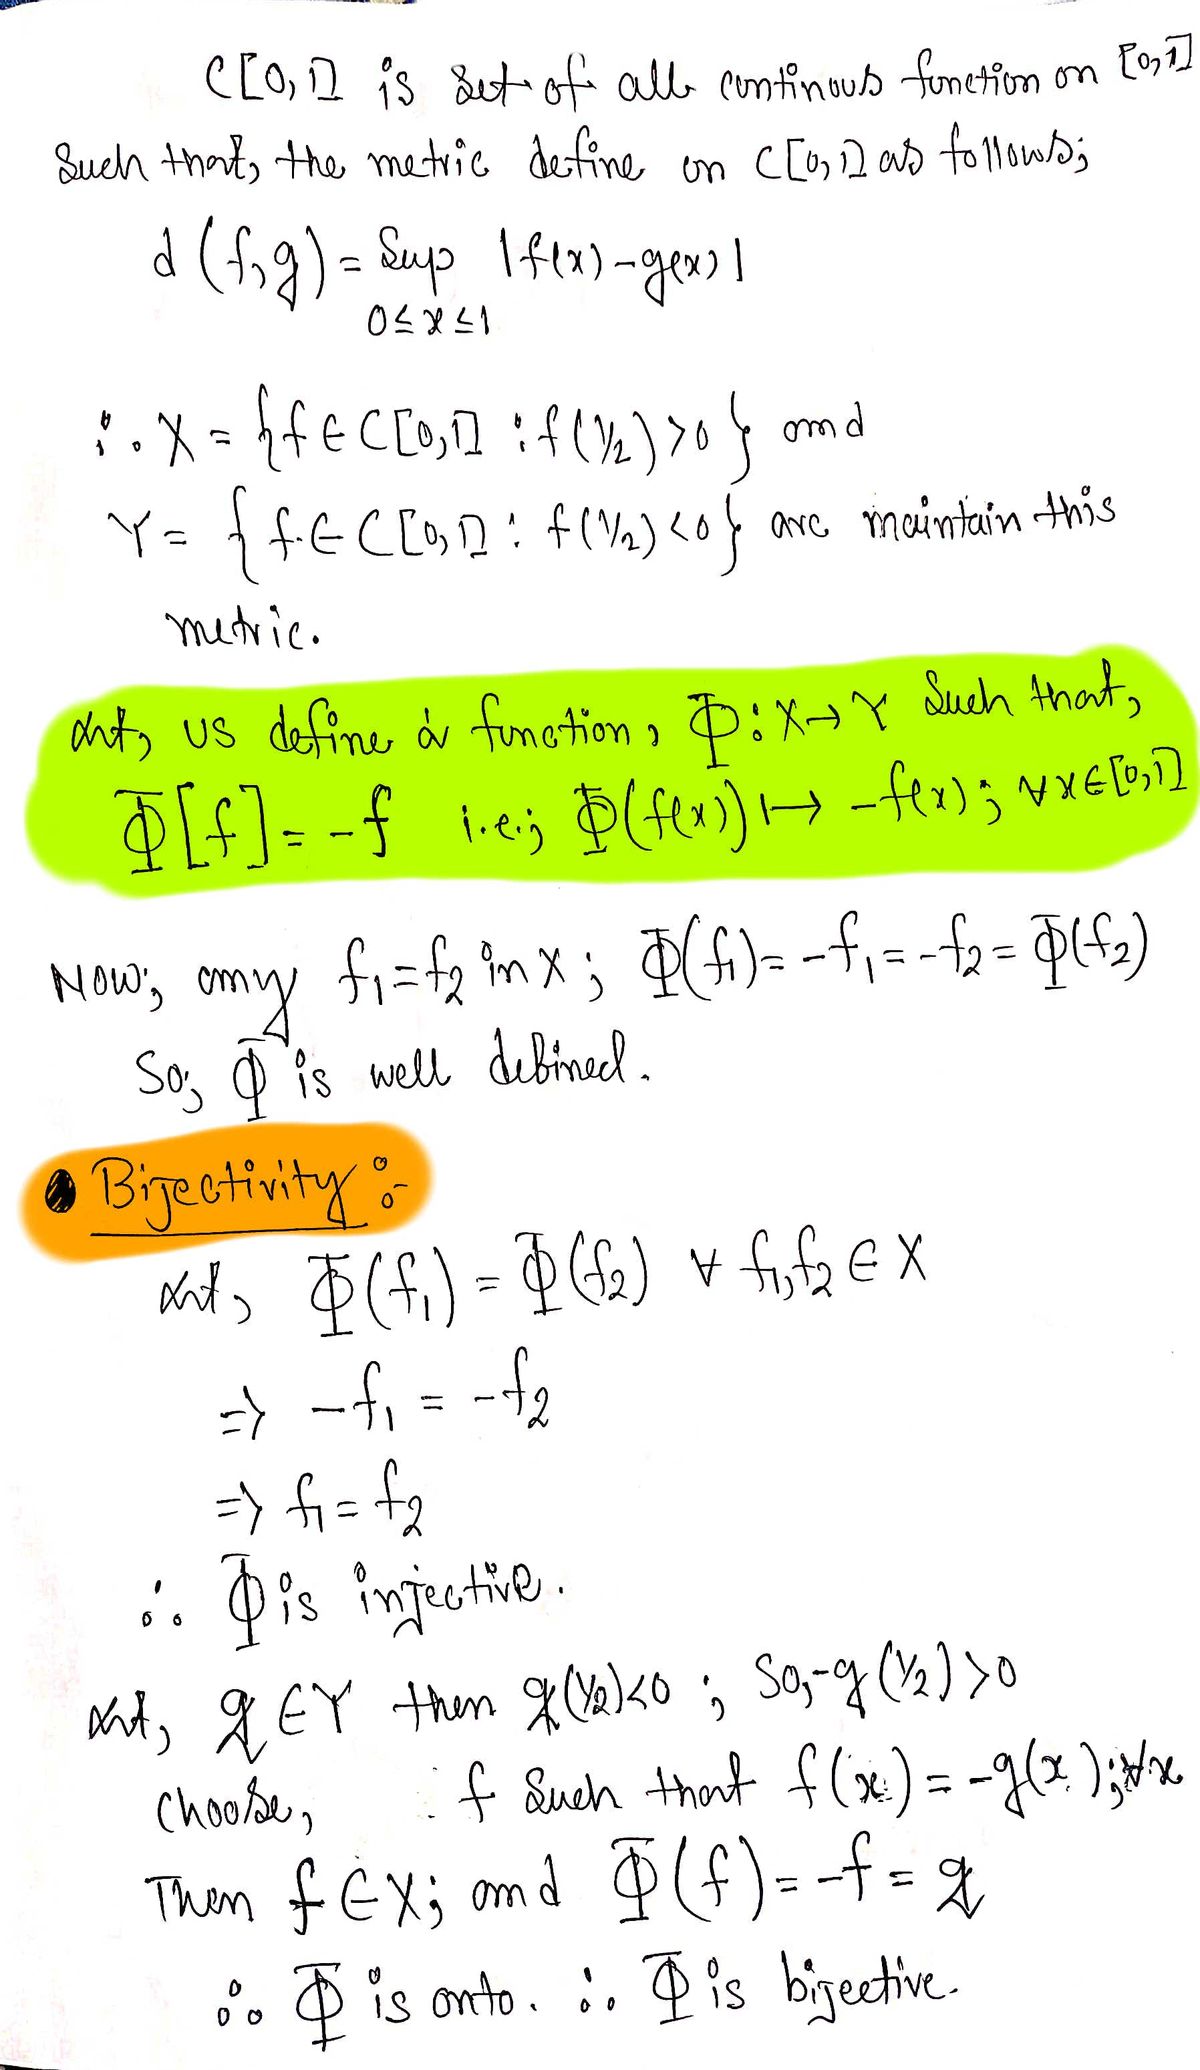 C[0,1] is set of all continous function on [0,1]
Such that, the metric define on C[0,1] as follows;
d(f,g) = Sup |f(x)-g(x)|
0≤x≤1
∴ X = {f ∈ C[0,1] : f(1/2)>0} and
Y = {f ∈ C[0,1] : f(1/2)<0} are maintain this
metric.
Let, us define a function, Φ: X→Y Such that,
Φ[f] = -f i.e.; Φ(f(x)) ↦ -f(x); ∀x∈[0,1]
Now; any f₁=f₂ in X; Φ(f₁) = -f₁ = -f₂ = Φ(f₂)
So; Φ is well defined.
● Bijectivity :-
Let, Φ(f₁) = Φ(f₂) ∀ f₁,f₂ ∈ X
⇒ -f₁ = -f₂
⇒ f₁ = f₂
∴ Φ is injective.
Let, g ∈ Y then g(1/2)<0 ; So, -g(1/2)>0
choose, f Such that f(x) = -g(x);∀x
Then f ∈ X; and Φ(f) = -f = g
∴ Φ is onto. ∴ Φ is bijective.